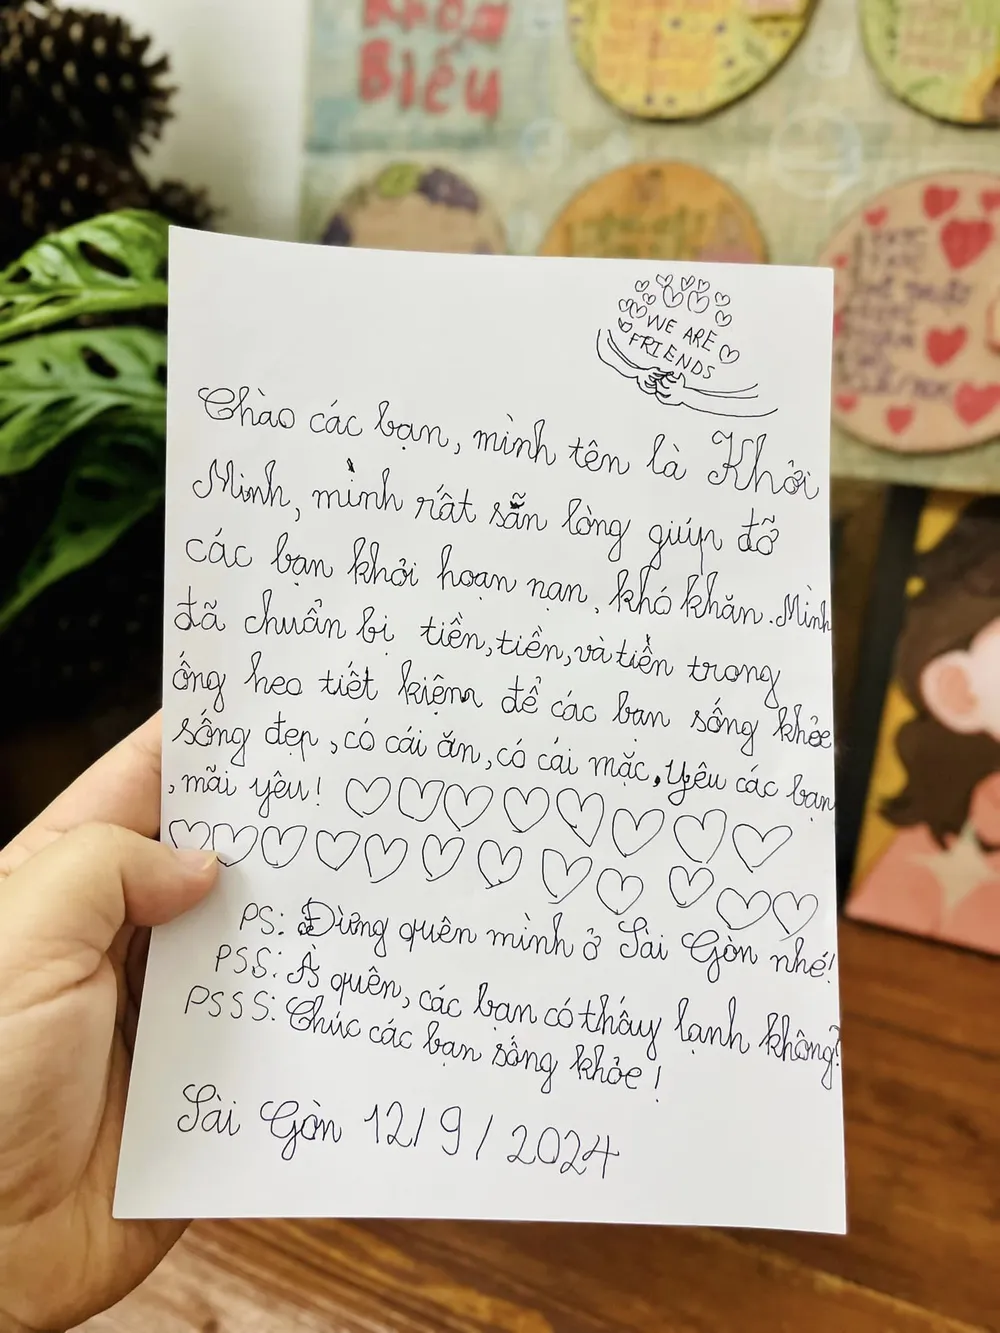 BIẾU
WE ARE
FRIENDS
Chào các bạn, mình tên là Khởi
Minh, mình rất sẵn lòng giúp đỡ
các bạn khỏi hoạn nạn, khó khăn. Mình
đã chuẩn bị tiền, tiền, và tiền trong
ống heo tiết kiệm để các bạn sống khỏe
sống đẹp, có cái ăn, có cái mặc, yêu các bạn
, mãi yêu!
PS: Đừng quên mình ở Sài Gòn nhé!
PSS: À quên, các bạn có thấy lạnh không?
PSSS: Chúc các bạn sống khỏe!
Sài Gòn 12/9/2024